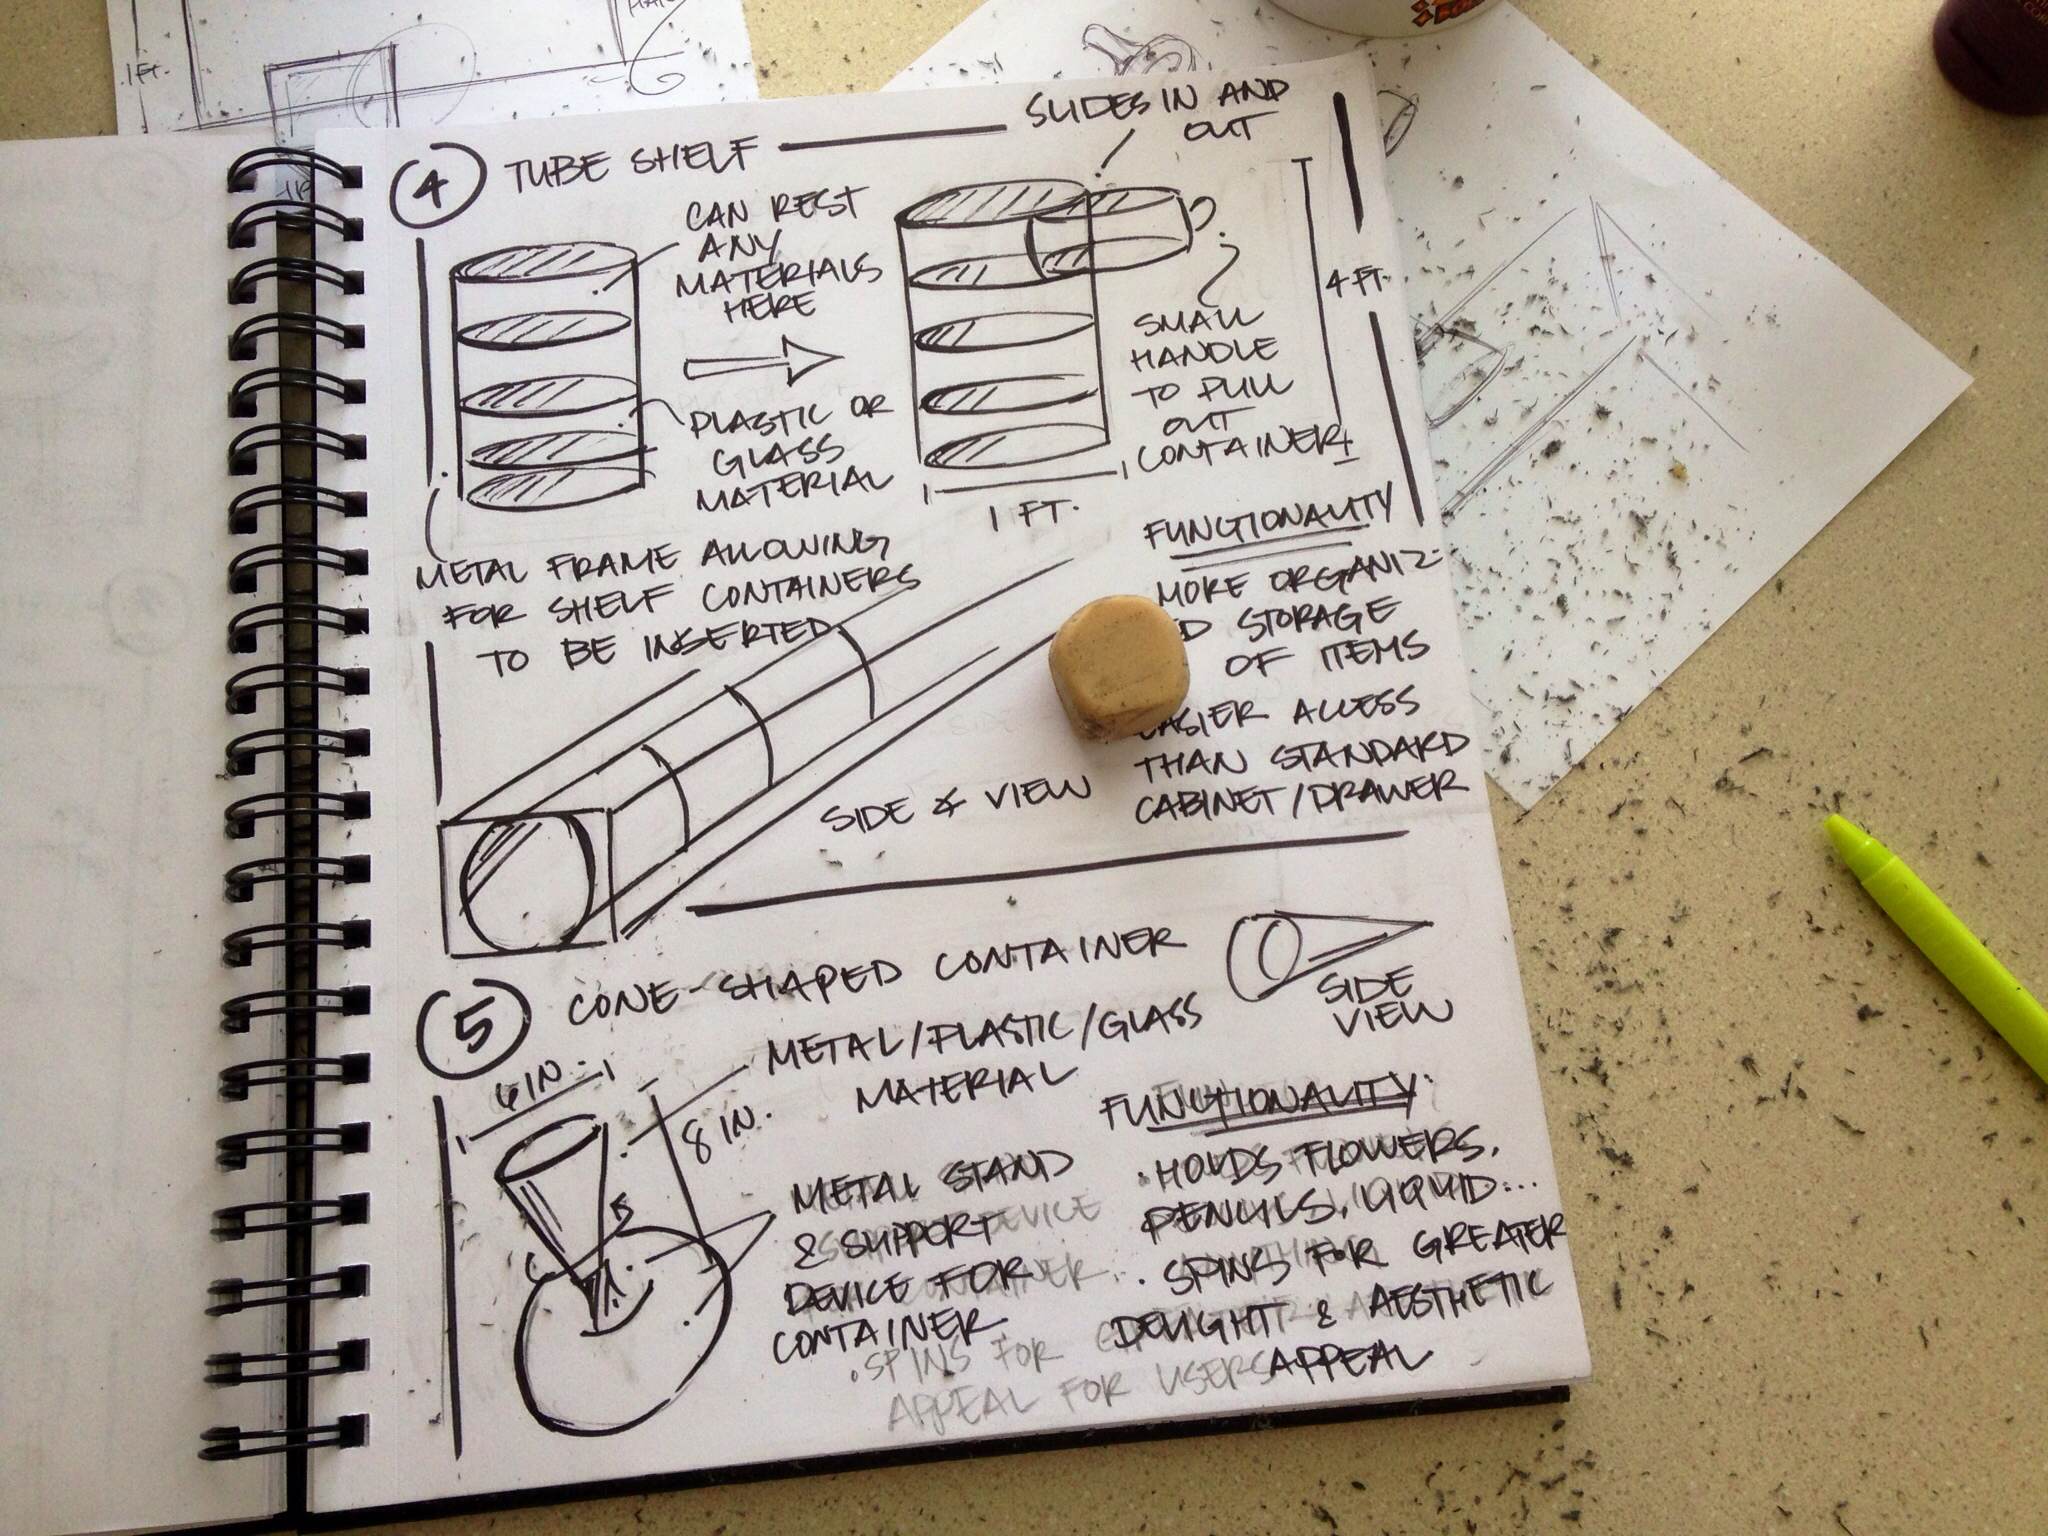 1 FT.
4
TUBE SHELF
SLIDES IN AND
OUT
CAN REST
ANY
MATERIALS
HERE
4 FT.
SMALL
HANDLE
TO PULL
OUT
CONTAINER
PLASTIC OR
GLASS
MATERIAL
1 FT.
METAL FRAME ALLOWING
FOR SHELF CONTAINERS
TO BE INSERTED
FUNCTIONALITY
MORE ORGANIZ-
ED STORAGE
OF ITEMS
EASIER ACCESS
THAN STANDARD
CABINET/DRAWER
SIDE & VIEW
5
CONE-SHAPED CONTAINER
SIDE
VIEW
6 IN.
8 IN.
METAL/PLASTIC/GLASS
MATERIAL
METAL STAND
& SUPPORT
DEVICE FOR
CONTAINER
FUNCTIONALITY:
·HOLDS FLOWERS,
PENCILS, LIQUID...
· SPINS FOR GREATER
DELIGHT & AESTHETIC
APPEAL
·SPINS FOR
APPEAL FOR USERS